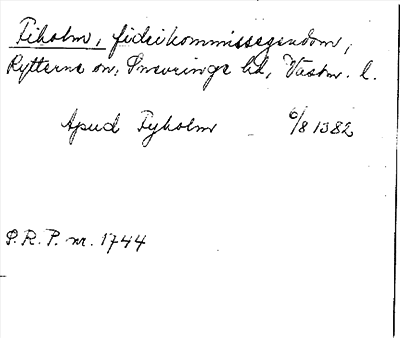 Fiholm, fideikommissegendom,
Rytterne sn, Snevringe hd, Västm. l.
Apud Fyholm 6/8 1382
S.R.P. nr. 1744